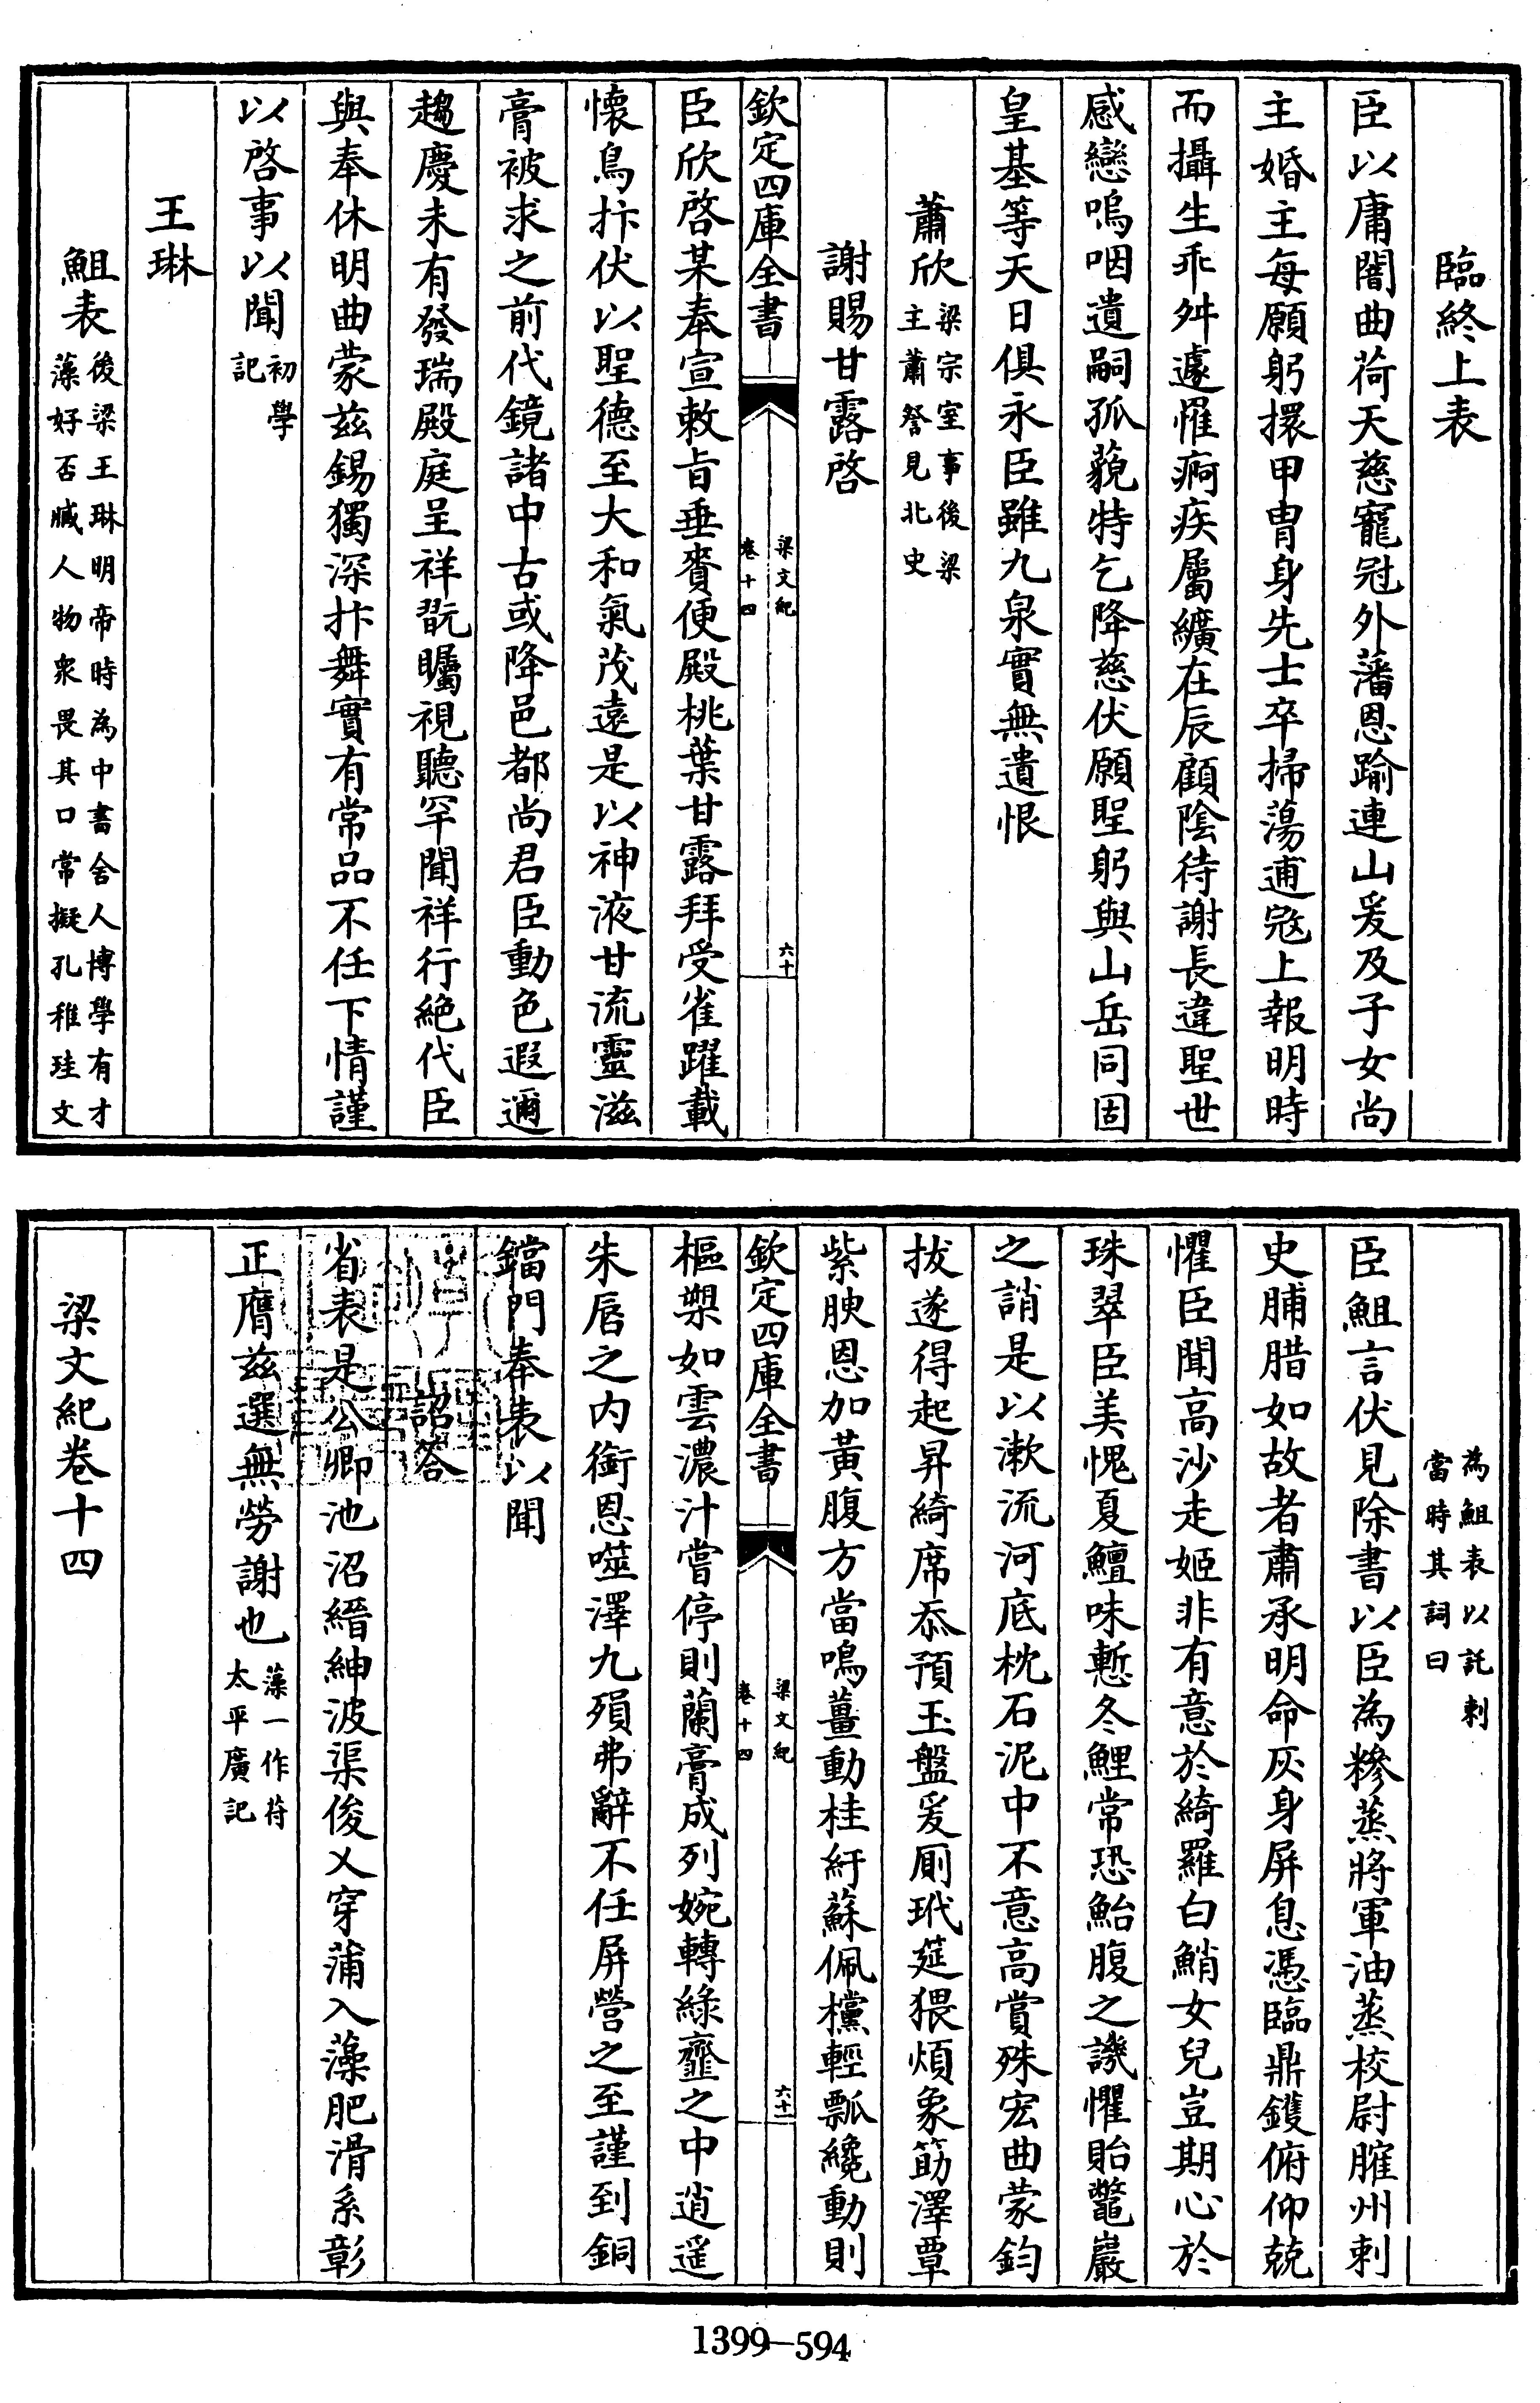 臨終上表
臣以庸闇曲荷天慈寵冠外藩恩踰連山爰及子女尚
主婚主每願躬擐甲胄身先士卒掃蕩逋寇上報明時
而攝生乖舛遽罹痾疾屬纊在辰顧陰待謝長違聖世
感戀嗚咽遺嗣孤藐特乞降慈伏願聖躬與山岳同固
皇基等天日俱永臣雖九泉實無遺恨
蕭欣梁宗室事後梁
主蕭詧見北史
謝賜甘露啓
欽定四庫全書
梁文紀
卷十四
六十
臣欣啓某奉宣敕旨垂賚便殿桃葉甘露拜受雀躍載
懷鳥抃伏以聖德至大和氣茂遠是以神液甘流靈滋
膏被求之前代鏡諸中古或降邑都尚君臣動色遐邇
趨慶未有發瑞殿庭呈祥翫矚視聽罕聞祥行絶代臣
與奉休明曲蒙茲錫獨深抃舞實有常品不任下情謹
以啓事以聞初學
記
王琳
䱉表後梁王琳明帝時為中書舍人博學有才
藻好否臧人物衆畏其口常擬孔稚珪文
為䱉表以託刺
當時其詞曰
臣䱉言伏見除書以臣為糝蒸將軍油蒸校尉臛州刺
史脯腊如故者肅承明命灰身屏息憑臨鼎鑊俯仰兢
懼臣聞高沙走姬非有意於綺羅白鮹女兒豈期心於
珠翠臣美愧夏鱣味慙冬鯉常恐鮐腹之譏懼貽鼈巖
之誚是以漱流河底枕石泥中不意高賞殊宏曲蒙鈞
拔遂得起昇綺席忝預玉盤爰厠玳筵猥煩象筯澤覃
紫腴恩加黃腹方當鳴薑動桂紆蘇佩欓輕瓢纔動則
欽定四庫全書
梁文紀
卷十四
六十一
樞槊如雲濃汁嘗停則蘭膏成列婉轉綠虀之中逍遥
朱唇之内銜恩噬澤九殞弗辭不任屏營之至謹到銅
鐺門奉表以聞
詔答
省表是公卿池沼縉紳波渠俊乂穿蒲入藻肥滑系彰
正膺茲選無勞謝也藻一作荇
太平廣記
梁文紀卷十四
1399-594